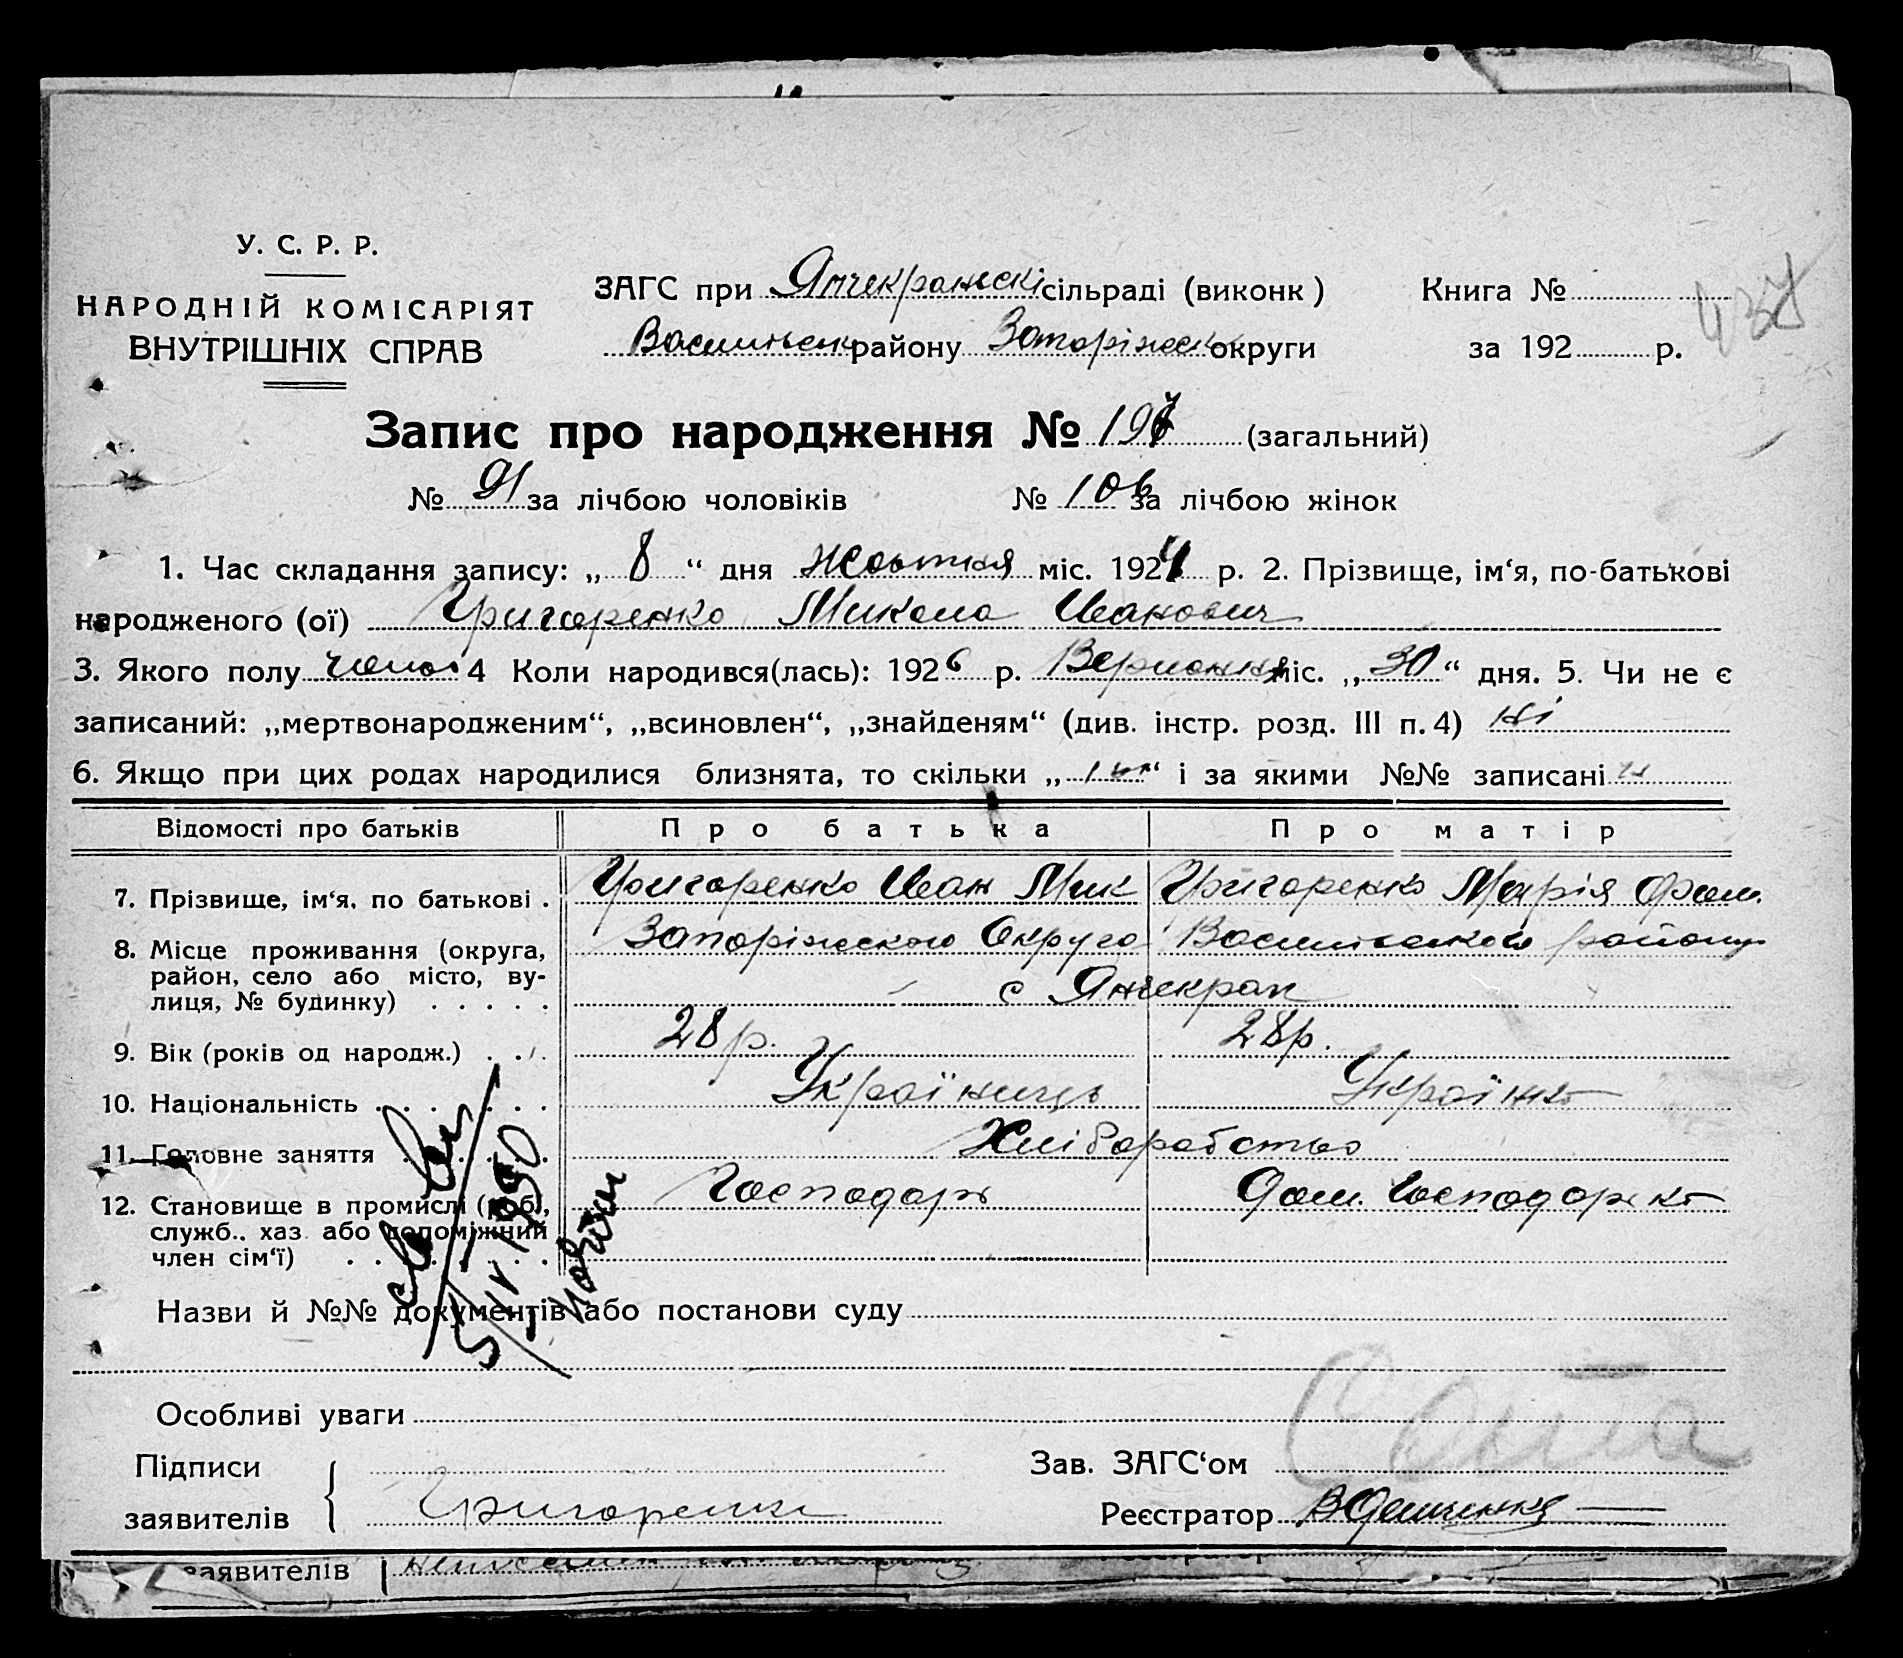 У. С. Р. Р.
НАРОДНІЙ КОМІСАРІЯТ
ВНУТРІШНІХ СПРАВ
ЗАГС при Янчекраньскі сільраді (виконк)
Василиьськ району Запоріжськ округи
Книга №
за 192 р.
437
Запис про народження № 197 (загальний)
№ 91 за лічбою чоловіків № 106 за лічбою жінок
1. Час складання запису: „ 8 “ дня Жовтня міс. 192 р. 2. Прізвище, ім‘я, по-батькові
народженого (ої) Григоренко Микола Иванович
3. Якого полу чолов 4 Коли народився(лась): 1926 р. Верисня міс. „ 30 “ дня. 5. Чи не є
записаний: „мертвонародженим“, „всиновлен“, „знайденям“ (див. інстр. розд. III п. 4) ні
6. Якщо при цих родах народилися близнята, то скільки „ “ і за якими №№ записані
Відомості про батьків Про батька Про матір
7. Прізвище, ім‘я, по батькові . Григоренко Иван Мик Григоренко Марія Фом.
8. Місце проживання (округа, Запоріжского Округа Василівського району
район, село або місто, ву-
лиця, № будинку) . . . . . с Янчекрак
9. Вік (років од народж.) . . . 28 р. 28 р.
10. Національність . . . . . . Україниць Українка
11. Головне заняття . . . . . Хліборобство
12. Становище в промислі (роб., Господарь Дом. Господорка
служб.. хаз або допоміжний
член сім‘ї) . . . . . . .
5/IV 1950
Назви й №№ документів або постанови суду
Особливі уваги
Підписи
заявителів Григоренко
Зав. ЗАГС‘ом
Реєстратор
заявителів